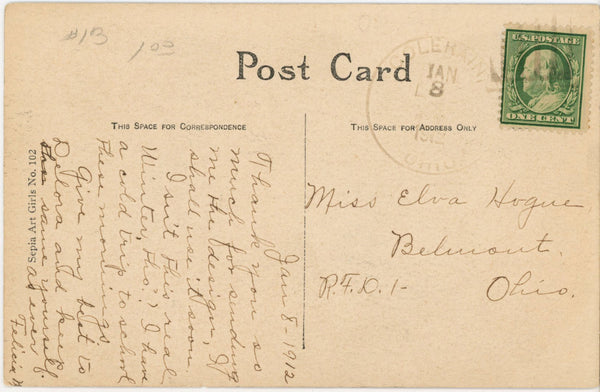 #13
1.00
Post Card
THIS SPACE FOR CORRESPONDENCE
THIS SPACE FOR ADDRESS ONLY
U.S. POSTAGE
ONE CENT
JAN
8
OHIO
Jan 8-1912
Thank you so
much for sending
me the design, I
shall use it soon.
Isn't this real
Winter, tho? I have
a cold trip to school
these mornings.
Give my best to
Delora and keep
the same yourself.
as ever
Felicia
Miss Elva Hogue
Belmont.
R.F.D. 1- Ohio.
Sepia Art Girls No. 102